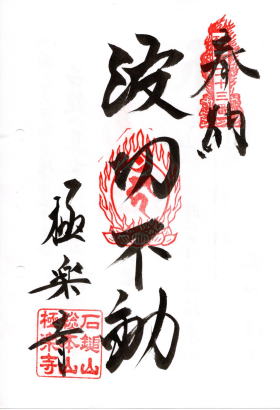 奉納
波切不動
極楽寺
石鎚山
総本山
極楽寺